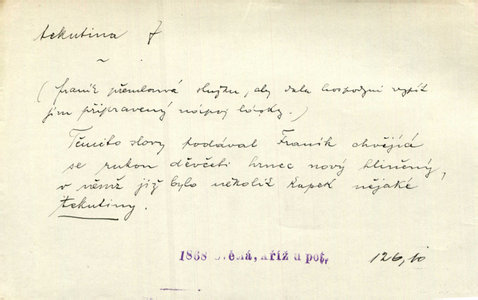 tekutina f
~
(Franík přemlouvá služku, aby dala hospodyni vypít
jím připravený nápoj lásky.)
Těmito slovy podával Franík chvějící
se rukou děvčeti hrnec nový hliněný,
v němž již bylo několik kapek nějaké
tekutiny.
1838 kříž u pot. 126, 10